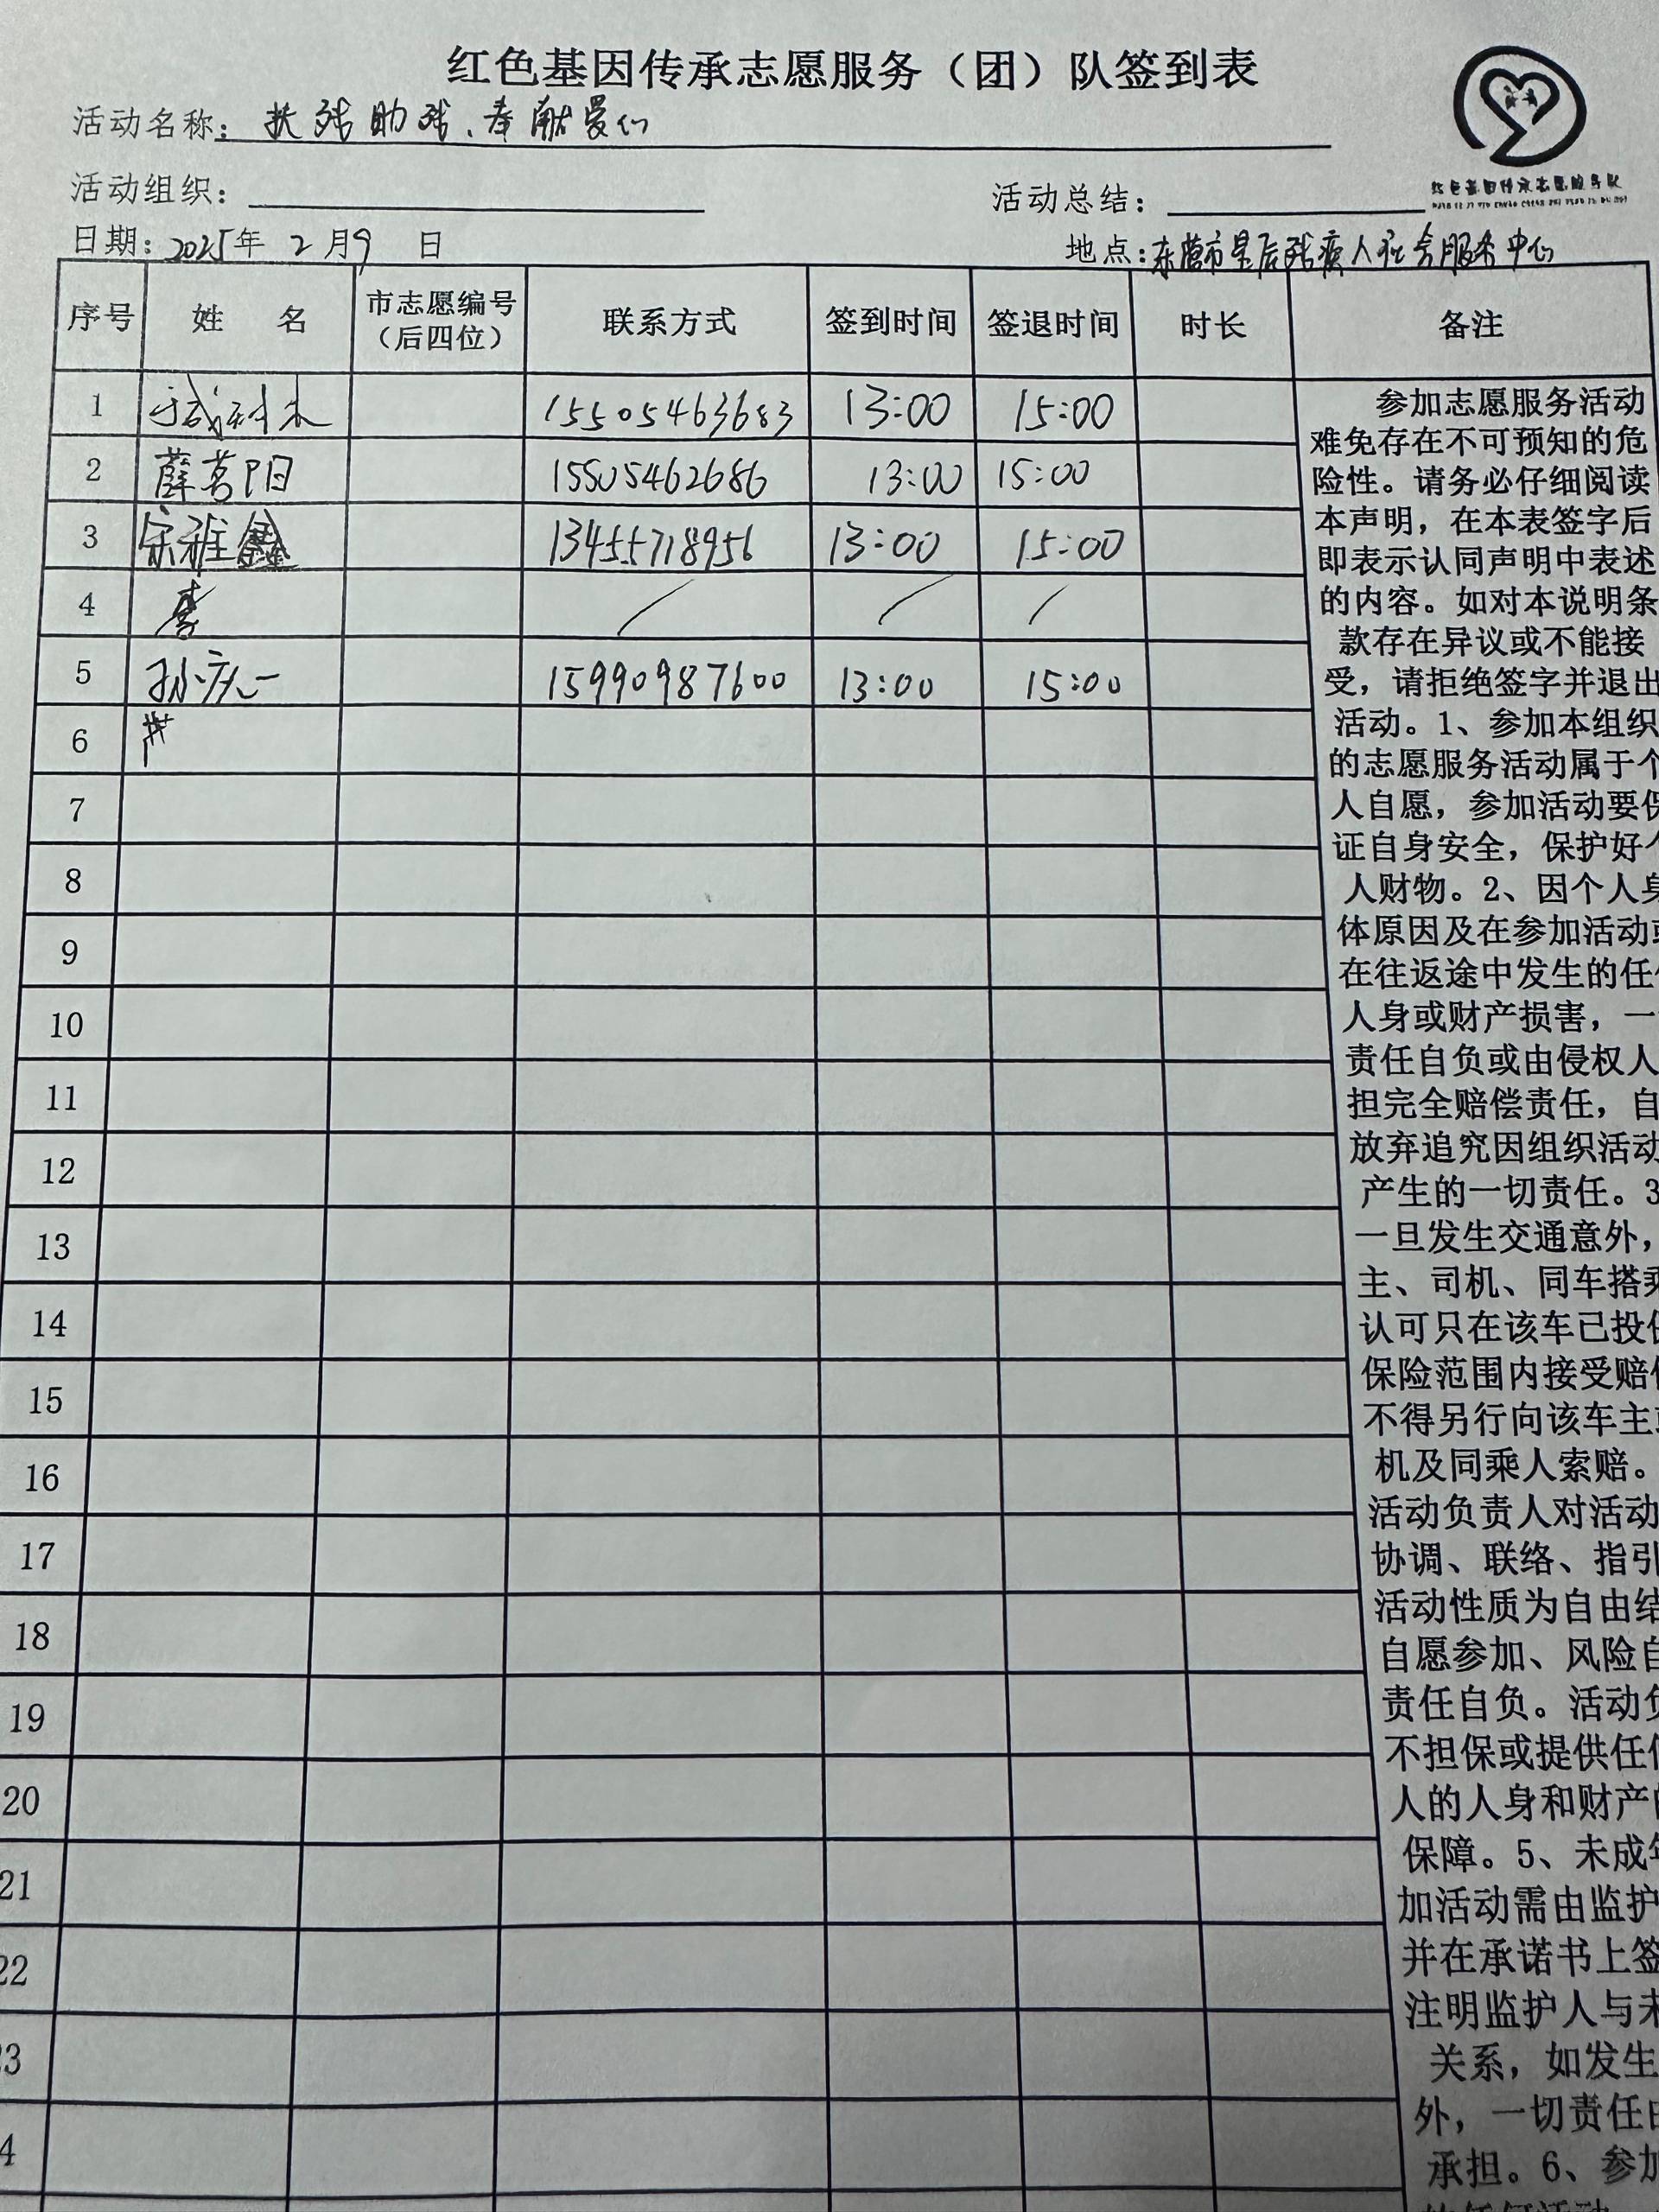 红色基因传承志愿服务（团）队签到表
活动名称：扶残助残、奉献爱心
活动组织：
活动总结：
红色基因传承志愿服务队
日期：2025年 2月9 日
地点：东营市星辰残疾人社会服务中心
序号 姓 名 市志愿编号（后四位） 联系方式 签到时间 签退时间 时长 备注
1 15505463683 13:00 15:00
2 薛茗阳 15505462686 13:00 15:00
3 宋雅鑫 13455718956 13:00 15:00
4 / / /
5 孙庆一 15990987600 13:00 15:00
6
7
8
9
10
11
12
13
14
15
16
17
18
19
20
21
22
23
4
参加志愿服务活动
难免存在不可预知的危
险性。请务必仔细阅读
本声明，在本表签字后
即表示认同声明中表述
的内容。如对本说明条
款存在异议或不能接
受，请拒绝签字并退出
活动。1、参加本组织
的志愿服务活动属于个
人自愿，参加活动要保
证自身安全，保护好个
人财物。2、因个人身
体原因及在参加活动或
在往返途中发生的任何
人身或财产损害，一
责任自负或由侵权人
担完全赔偿责任，自
放弃追究因组织活动
产生的一切责任。3
一旦发生交通意外，
主、司机、同车搭乘
认可只在该车已投保
保险范围内接受赔偿
不得另行向该车主或
机及同乘人索赔。
活动负责人对活动
协调、联络、指引
活动性质为自由结
自愿参加、风险自
责任自负。活动负
不担保或提供任何
人的人身和财产的
保障。5、未成年
加活动需由监护
并在承诺书上签
注明监护人与未
关系，如发生
外，一切责任由
承担。6、参加